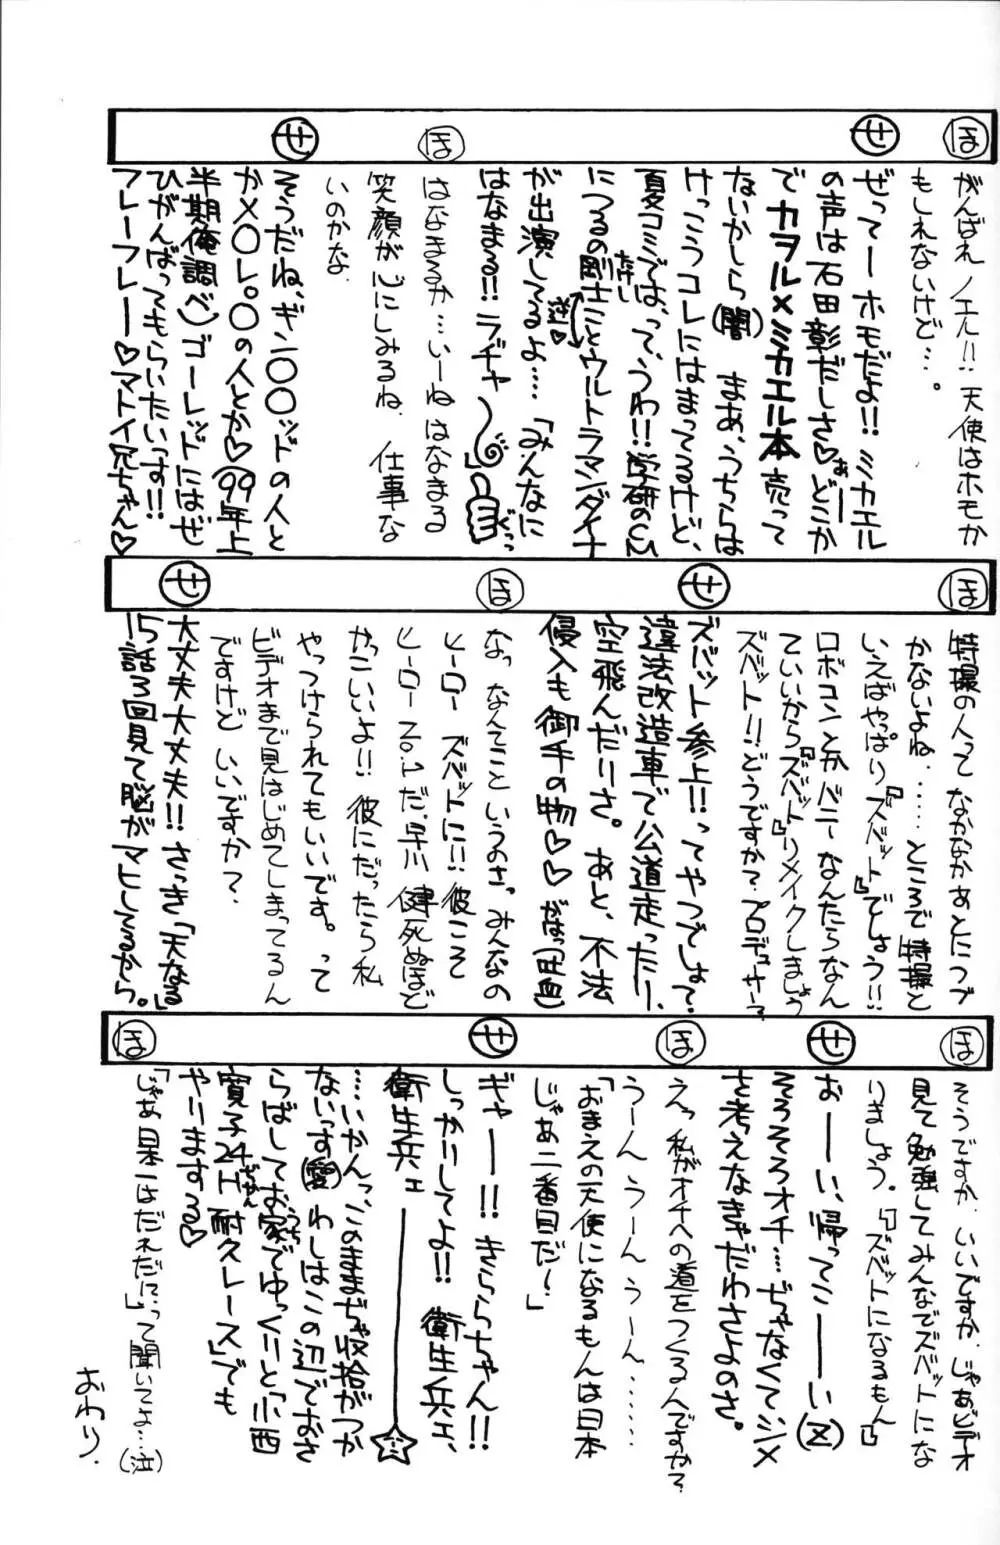 ほ
がんばれノエル!!天使はホモか
もしれないけど…。
せ
ぜってーホモだよ!!ミカエル
の声は石田彰だしさ♡あーどこか
でカヲル×ミカエル本売って
ないかしら(闇)まあ、うちらは
けっこうコレにはまってるけど、
夏コミでばって、うわ!!学研のCM
につるの剛士ことウルトラマンダイナ
たけし
逆
が出演してるよ……「みんなに
はなまる!!ラヂャー」ぐっっ
ほ
はなまるか…いーねはなまる
笑顔が心にしみるね、仕事な
いのかな
せ
そうだね、ギン〇〇〇ッドの人と
かメ〇レ〇〇の人とか♡(99年上
半期俺調べ)ゴーレッドにはぜ
ひがんばってもらいたいっす!!
フレーフレー♡マトイ兄ちゃん♡
ほ
特撮の人ってなかなかあとにつづ
かないよね……ところで特撮と
いえばやっぱり『ズバット』でしょう!!
ロボコンとかバニーなんたらなん
ていいから『ズバット』リメイクしましょう
ズバット!!どうですか?プロデューサー?
せ
ズバット参上!!ってやつでしょ?
違法改造車で公道走ったり、
空飛んだりさ。あと、不法
侵入も御手の物♡♡がはっ(吐血)
ほ
なっなんてこというのさっみんなの
ヒーローズバットに!!彼こそ
ヒーローNo.1だ、早川健死ぬほど
やっこいいよ!!彼にだったら私
やっつけられてもいいです。って
ビデオまで見はじめてしまってるん
ですけどいいですか?
せ
大丈夫大丈夫!!さっき「天なる」
15話3回見て脳がマヒしてるから。
ほ
そうですか、いいですか、じゃあビデオ
見て勉強してみんなでズバットにな
りましょう。『「ズバットになるもん」』
せ
おーーい、帰ってこーーい(Z)
そろそろオチ……ぢゃなくてシメ
を考えなきゃだわさよのさ。
ほ
えっ私がオチへの道をつくる人ですか?
うーんうーんうーん……
「おまえの天使になるもんは日本
じゃあ二番目だ!」
せ
ギャーー!!きららちゃん!!
しっかりしてよ!!衛生兵ェ、
衛生兵ェ
……いかんっ、このままぢゃ収拾がつか
ないっす(愛)わしはこの辺でおさ
らばしてお家でゆっくりと「小西
寛子24H耐久レース」でも
やりまする♡
ほ
「じゃあ日本一はだれだい」って聞いてよ…(泣)
おわり.